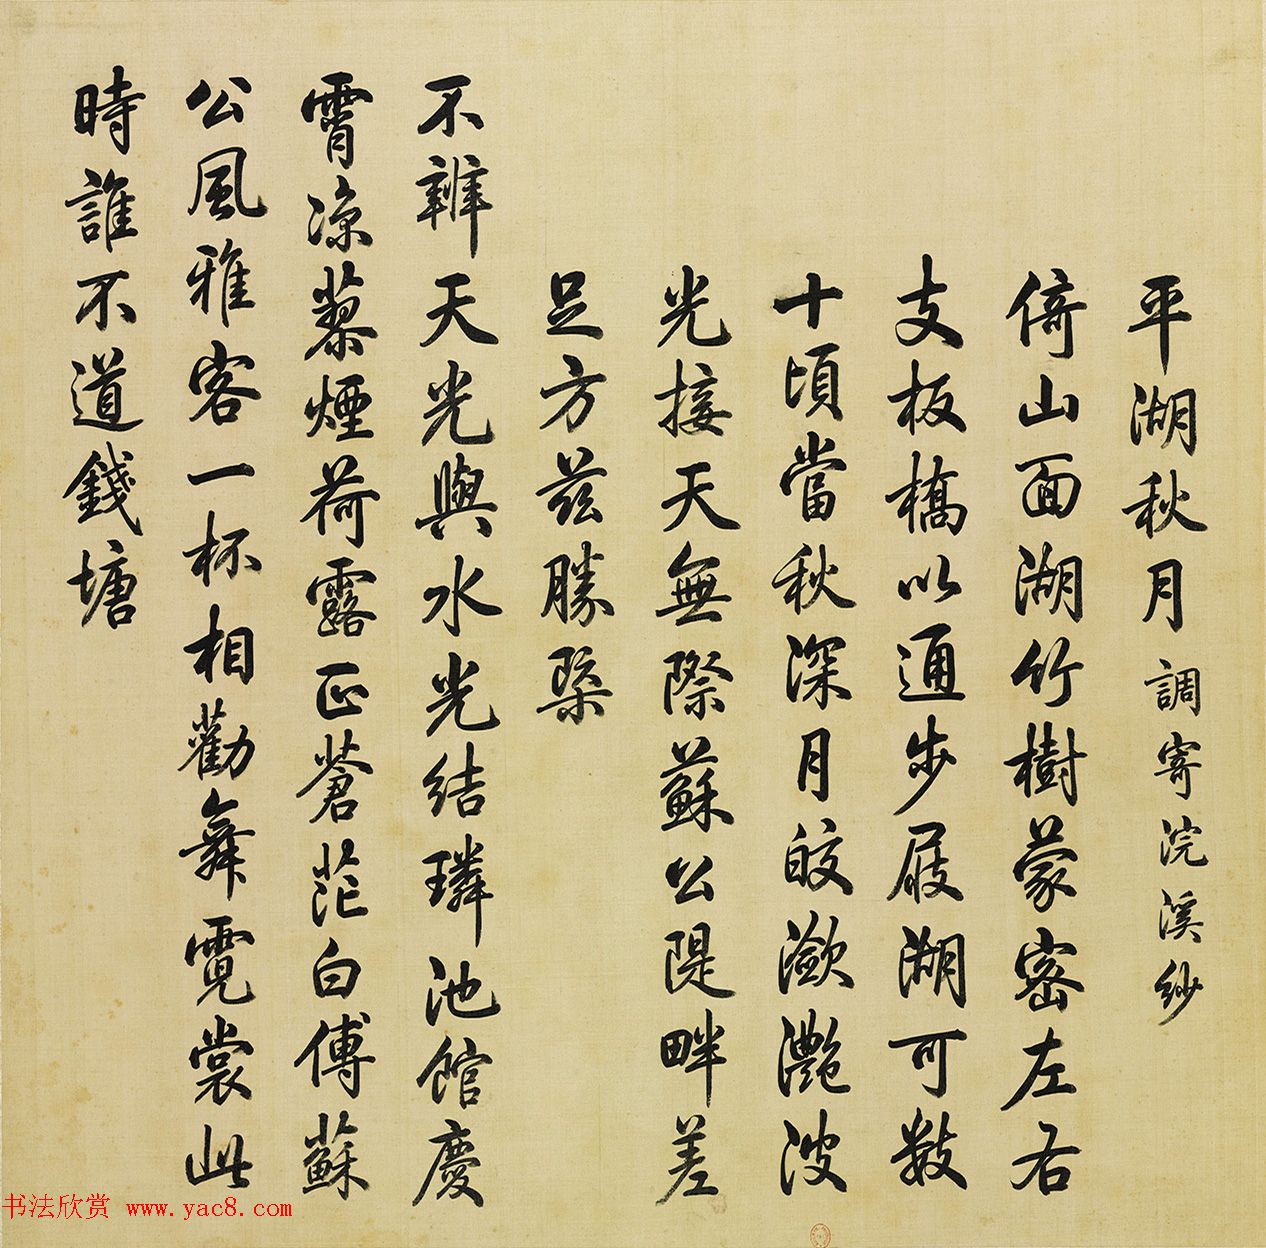 平湖秋月 調寄浣溪紗
倚山面湖竹樹蒙密左右
支板橋以通步屐湖可數
十頃當秋深月皎潋灧波
光接天無際蘇公隄畔差
足方兹勝槩
不辨天光與水光結璘池館慶
霄涼蓼煙荷露正蒼茫白傅蘇
公風雅客一杯相勸舞霓裳此
時誰不道錢塘
书法欣赏 www.yac8.com